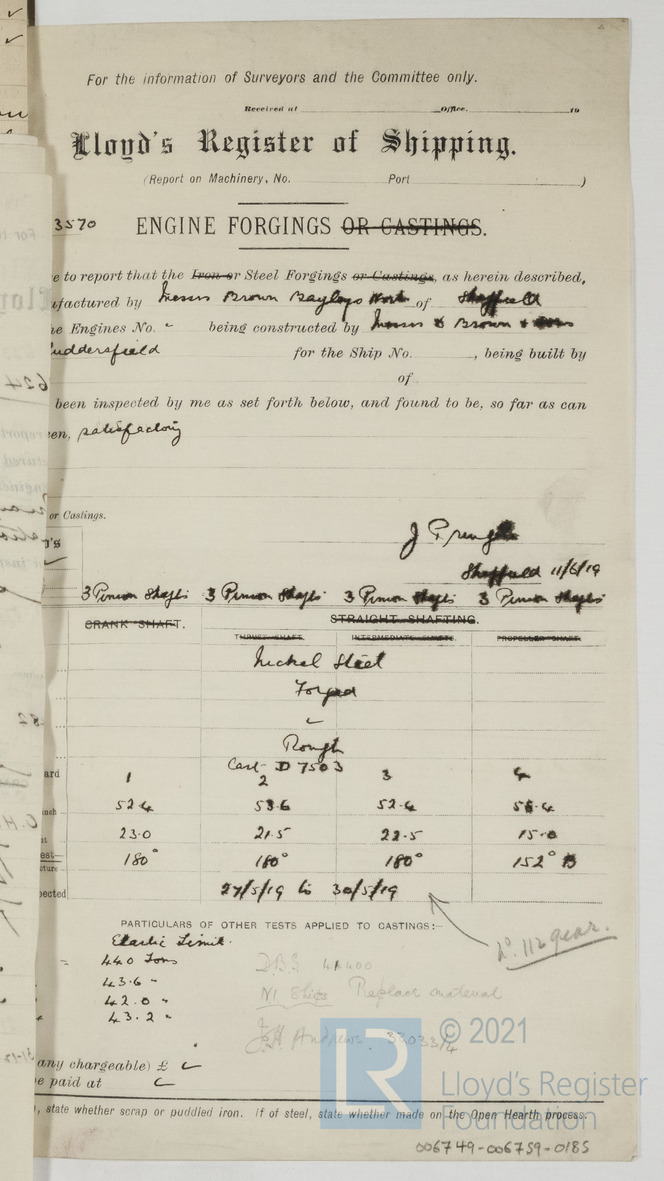 For the information of Surveyors and the Committee only.
Received at Office. 19
Lloyd's Register of Shipping.
(Report on Machinery, No. Port )
3570
ENGINE FORGINGS OR CASTINGS.
e to report that the Iron or Steel Forgings or Castings, as herein described,
ufactured by Messrs Brown Bayleys Work of Sheffield
he Engines No. - being constructed by Messrs D Brown + Sons
uddersfield for the Ship No. , being built by
of
been inspected by me as set forth below, and found to be, so far as can
een, satisfactory
or Castings.
J Pringle
Sheffield 11/6/19
3 Pinion Shafts 3 Pinion Shafts 3 Pinion Shafts 3 Pinion Shafts
CRANK SHAFT. STRAIGHT SHAFTING.
THRUST SHAFT. INTERMEDIATE SHAFTS. PROPELLER SHAFT.
Nickel Steel
Forged
Rough
Cast D 7503
ard 1 2 3 4
inch 52.4 53.6 52.4 56.4
23.0 21.5 22.5 15.0
est 180° 180° 180° 152° B
cture
pected 27/5/19 to 30/5/19
PARTICULARS OF OTHER TESTS APPLIED TO CASTINGS:—
Elastic Limit.
44.0 Tons
43.6 "
42.0 "
43.2 "
2° 112 gear.
DBS
Replace material
Andrews
any chargeable) £
e paid at
, state whether scrap or puddled iron. If of steel, state whether made on the Open Hearth process.
LR © 2021
Lloyd's Register
Foundation
006749-006759-0185